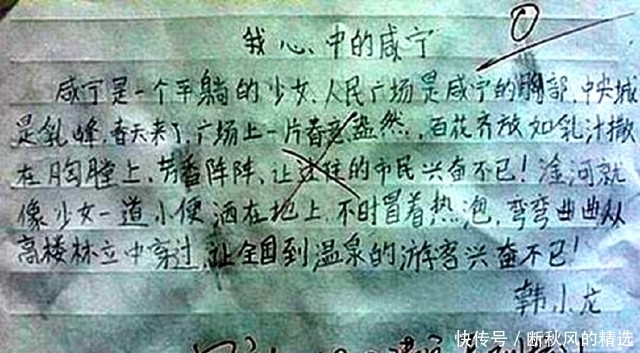 我心中的咸宁
0
咸宁是一个平躺的少女、人民广场是咸宁的胸部,中央城
是乳峰,春天来了,广场上一片春意盎然,百花齐放如乳汁撒
在胸膛上、芳香阵阵、让过往的市民兴奋不已!淦河就
像少女一道小便洒在地上,不时冒着热泡,弯弯曲曲从
高楼林立中穿过,让全国到温泉的游客兴奋不已!
韩小龙
快传号/断秋风的精选